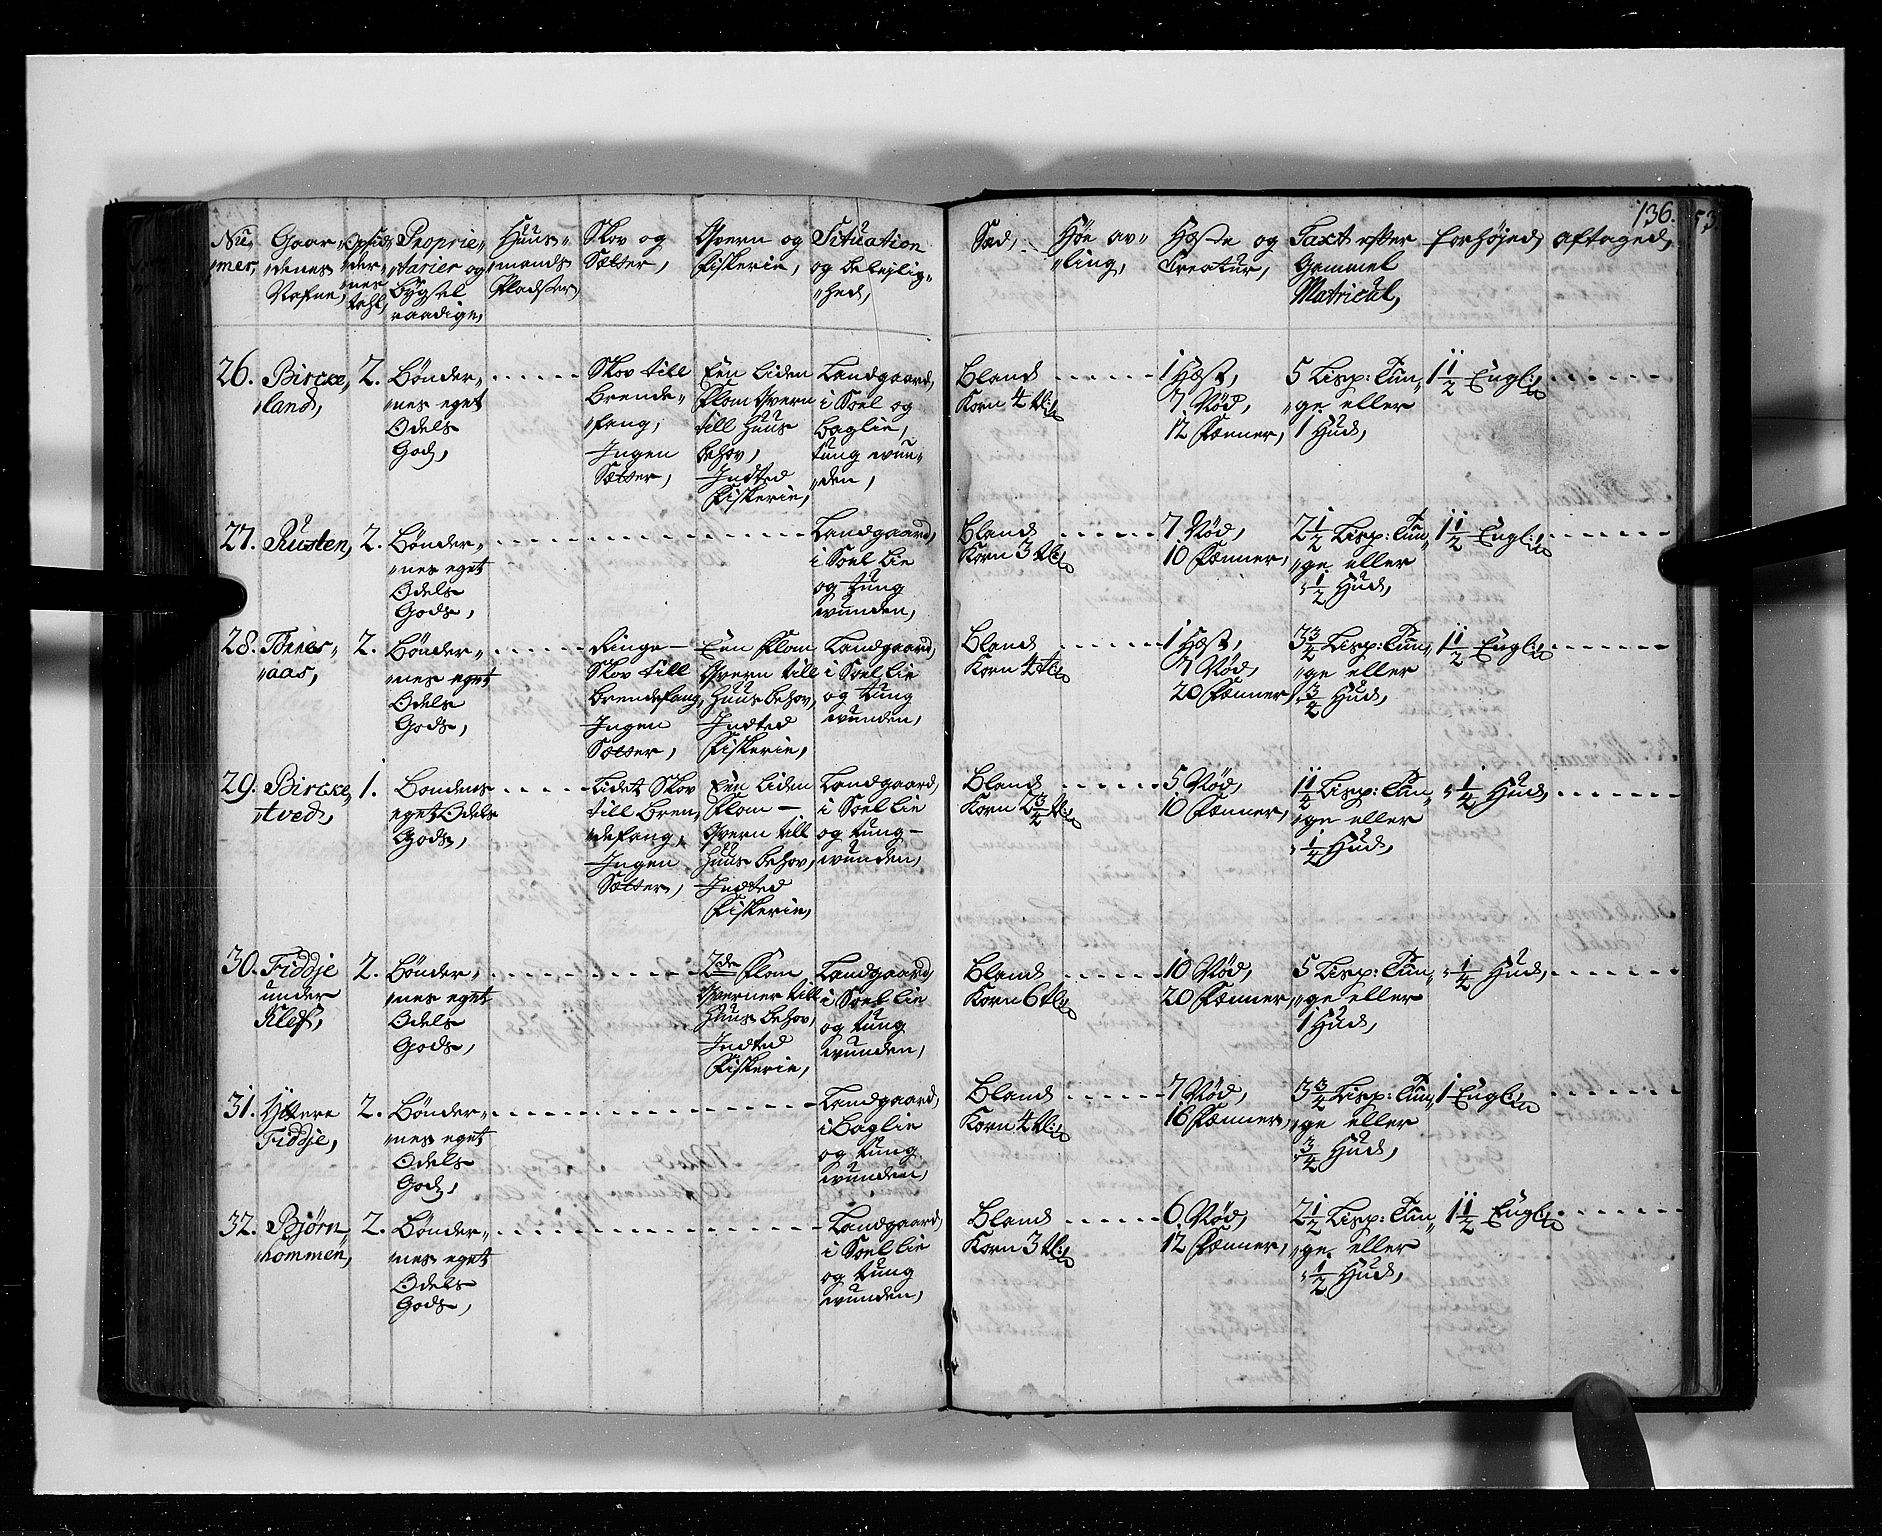 136.
Nu„ „mer, | Gaar„ „denes Nafne, | Opsid„ „der„ „nes tahl, | Proprie„ „tarier og bygsel raadige, | Huus„ „mands Pladser | Skov og Sætter, | Qvern og Fiskerie, | Situation og beleylig„ „hed, | Sæd, | Høe av„ „ling, | Hæste og Creatur, | Taxt efter Gammel Matricul, | forhøyed, | aftaged,
26. | Bircke„ „land, | 2. | Bønder„ „nes eget Odels Godz, | - - - - - | Skov till brende„ „fang, Ingen Sætter, | Een liden Flom Qvern till Huus behov, Indted Fiskerie, | Landgaard, i Soel og baglie, tung wun„ „den, | Bland Korn 4 tdr: | - - - - - | 1 Hæst, 7 Nød, 12 Fænner, | 5 Lisp: Tun„ „ge eller 1 Hud, | 1 1/2 Engl: | - - - - -
27. | Rusten, | 2. | Bønder„ „nes eget Odels Gods, | - - - - - | Landgaard, i Soel lie og tung wunden, | Bland Korn 3 tdr: | - - - - - | 7 Nød, 10 Fænner, | 2 1/2 Lisp: Tun„ „ge eller 1/2 Hud, | 1 1/2 Engl: | - - - - -
28. | Tønnes„ „aas, | 2. | Bønder„ „nes eget Odels Gods, | - - - - - | Ringe Skov till brendefang, Ingen Sætter, | Een Flom Qvern till Huus behov, Indted Fiskerie, | Landgaard, i Soel lie og tung wunden, | Bland Korn 4 tdr: | - - - - - | 1 Hæst, 7 Nød, 20 Fænner, | 3 3/4 Lisp: Tun„ „ge eller 3/4 Hud, | 1 1/2 Engl: | - - - - -
29. | Bircke„ „tved, | 1. | Bondens eget Odels Gods, | - - - - - | Lidet Skov till bren„ „defang, Ingen Sætter, | Een liden Flom Qvern till Huus behov, Indted Fiskerie, | Landgaard, i Soel lie og tung wunden, | Bland Korn 2 3/2 tdr: | - - - - - | 5 Nød, 10 Fænner, | 1 1/4 Lisp: Tun„ „ge eller 1/4 Hud, | 1/4 Hud, | - - - - -
30. | Fiddje under Klef, | 2. | Bønder„ „nes eget Odels Gods, | - - - - - | 2de Flom Qverner till Huus behov, Indted Fiskerie, | Landgaard, i Soel lie og tung wunden, | Bland Korn 6 tdr: | - - - - - | 10 Nød, 20 Fænner, | 5 Lisp: Tun„ „ge eller 1 Hud, | 1/4 Hud, | - - - - -
31. | Yttere Fiddje, | 2. | Bønder„ „nes eget Odels Godz, | - - - - - | Landgaard, i Baglie og tung wunden, | Bland Korn 4 tdr: | - - - - - | 7 Nød, 16 Fænner, | 3 3/4 Lisp: Tun„ „ge eller 3/4 Hud, | 1 Engl: | - - - - -
32. | Bjørn„ „kommen, | 2. | Bønder„ „nes eget Odels Gods, | - - - - - | Landgaard, i Soel lie og tung wunden, | Bland Korn 3 tdr: | - - - - - | 6 Nød, 12 Fænner, | 2 1/2 Lisp: Tun„ „ge eller 1/2 Hud, | 1 1/2 Engl: | - - - - -